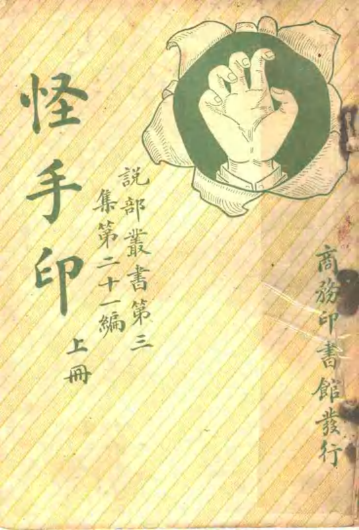 商務印書館發行
說部叢書第三
集第二十一編
怪手印
上冊